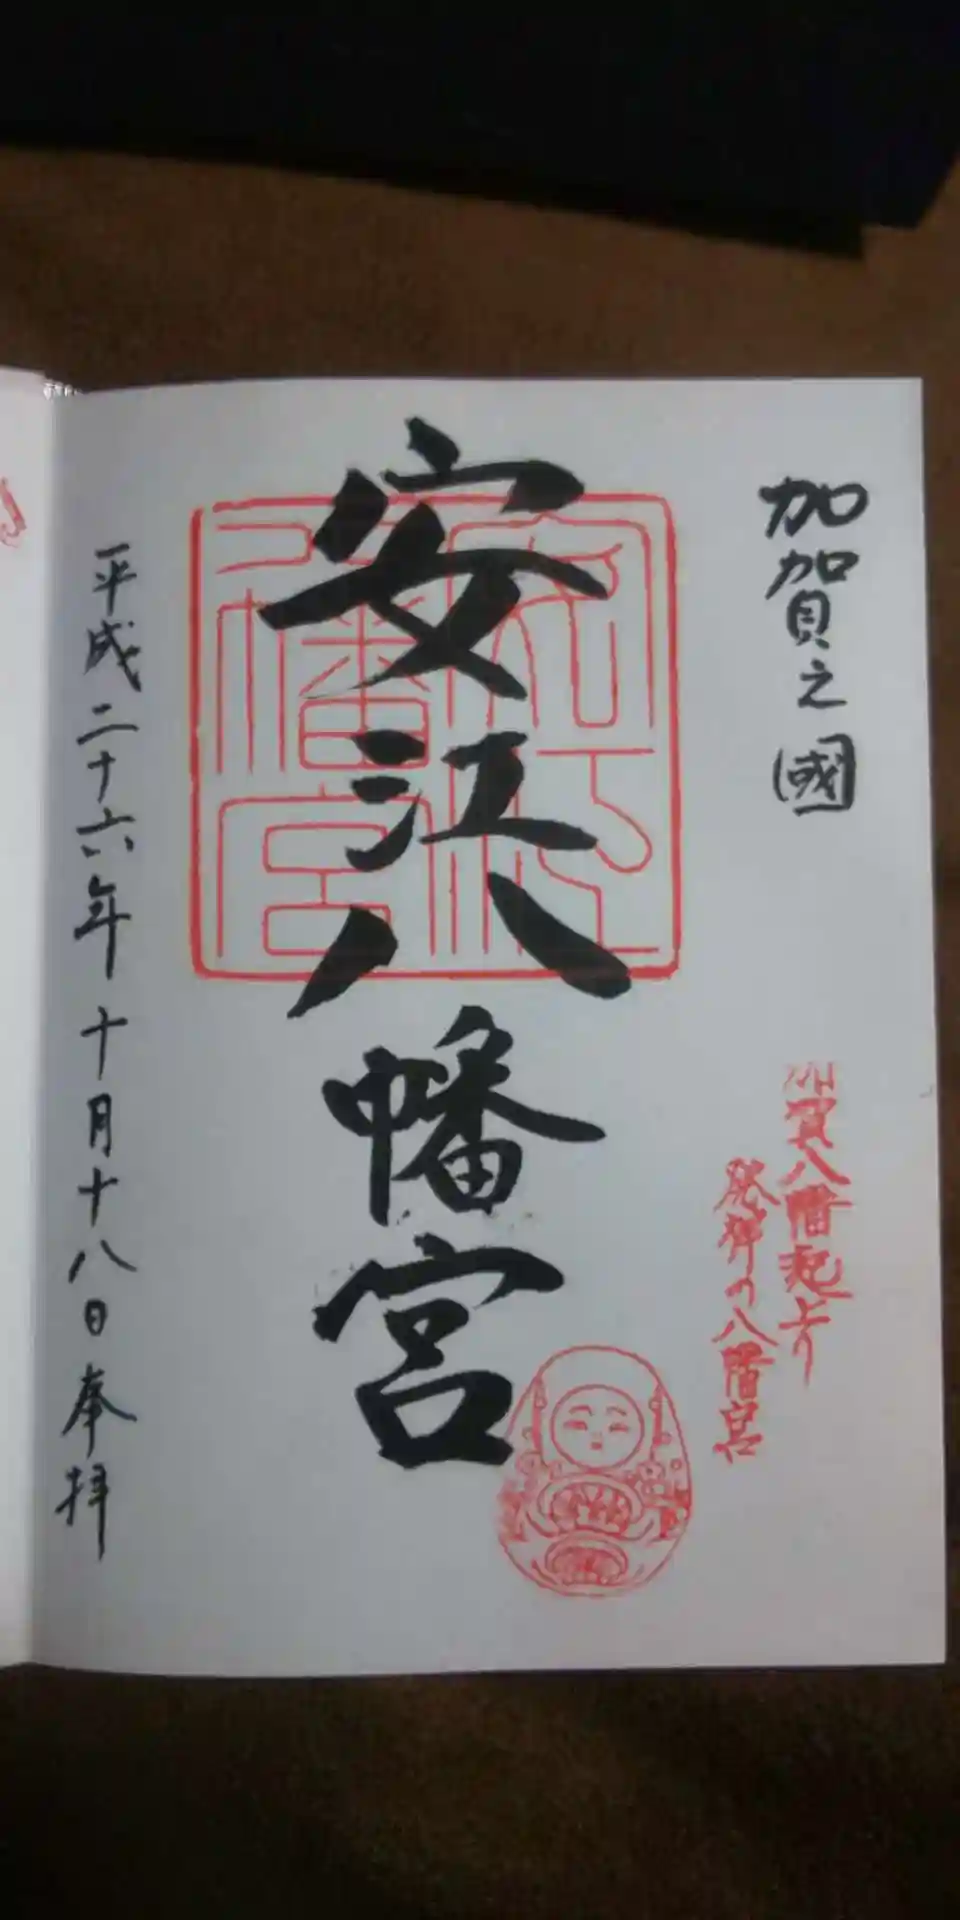 加賀之國
加賀八幡起上り
発祥の八幡宮
安江八幡宮
安江八幡宮
平成二十六年十月十八日奉拝